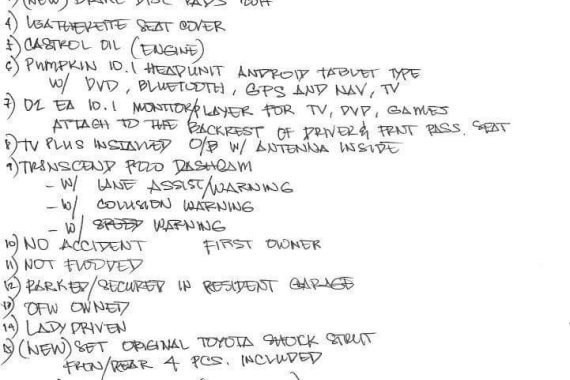 (NEW) BRAKE DISC PADS
4) LEATHERETTE SEAT COVER
5) CASTROL OIL (ENGINE)
6) PUMPKIN 10.1 HEADUNIT ANDROID TABLET TYPE
W/ DVD, BLUETOOTH, GPS AND NAV, TV
7) 02 EA 10.1 MONITOR/PLAYER FOR TV, DVD, GAMES
ATTACH TO THE BACKREST OF DRIVER & FRNT PASS. SEAT
8) TV PLUS INSTALLED O/B W/ ANTENNA INSIDE
9) TRANSCEND DASHCAM
- W/ LANE ASSIST/WARNING
- W/ COLLISION WARNING
- W/ SPEED WARNING
10) NO ACCIDENT FIRST OWNER
11) NOT FLOODED
12) PARKED/SECURED IN RESIDENT GARAGE
13) OFW OWNED
14) LADY DRIVEN
15) (NEW) SET ORIGINAL TOYOTA SHOCK STRUT
FRON/REAR 4 PCS. INCLUDED